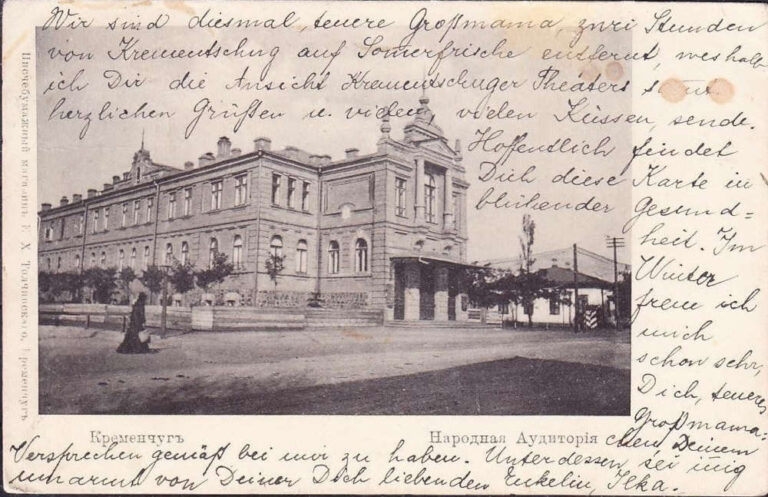 Wir sind diesmal, teuere Großmama, zwei Stunden
von Krementschug auf Somerfrische entfernt, weshalb
ich Dir die Ansicht Krementschuger Theaters samt
herzlichen Grüßen u. vielen, vielen Küssen, sende.
Hoffentlich findet
Dich diese Karte in
blühender Gesund=
heit. Im
Winter
freue ich
mich
schon sehr,
Dich, teueres
Großmama=
chen, Deinem
Versprechen gemäß bei mir zu haben. Unterdessen sei innig
umarmt von Deiner Dich liebenden Enkelin, Ilka.
Кременчугъ
Народная Аудиторія
Писчебумажный магазинъ Е. Х. Кременчугъ